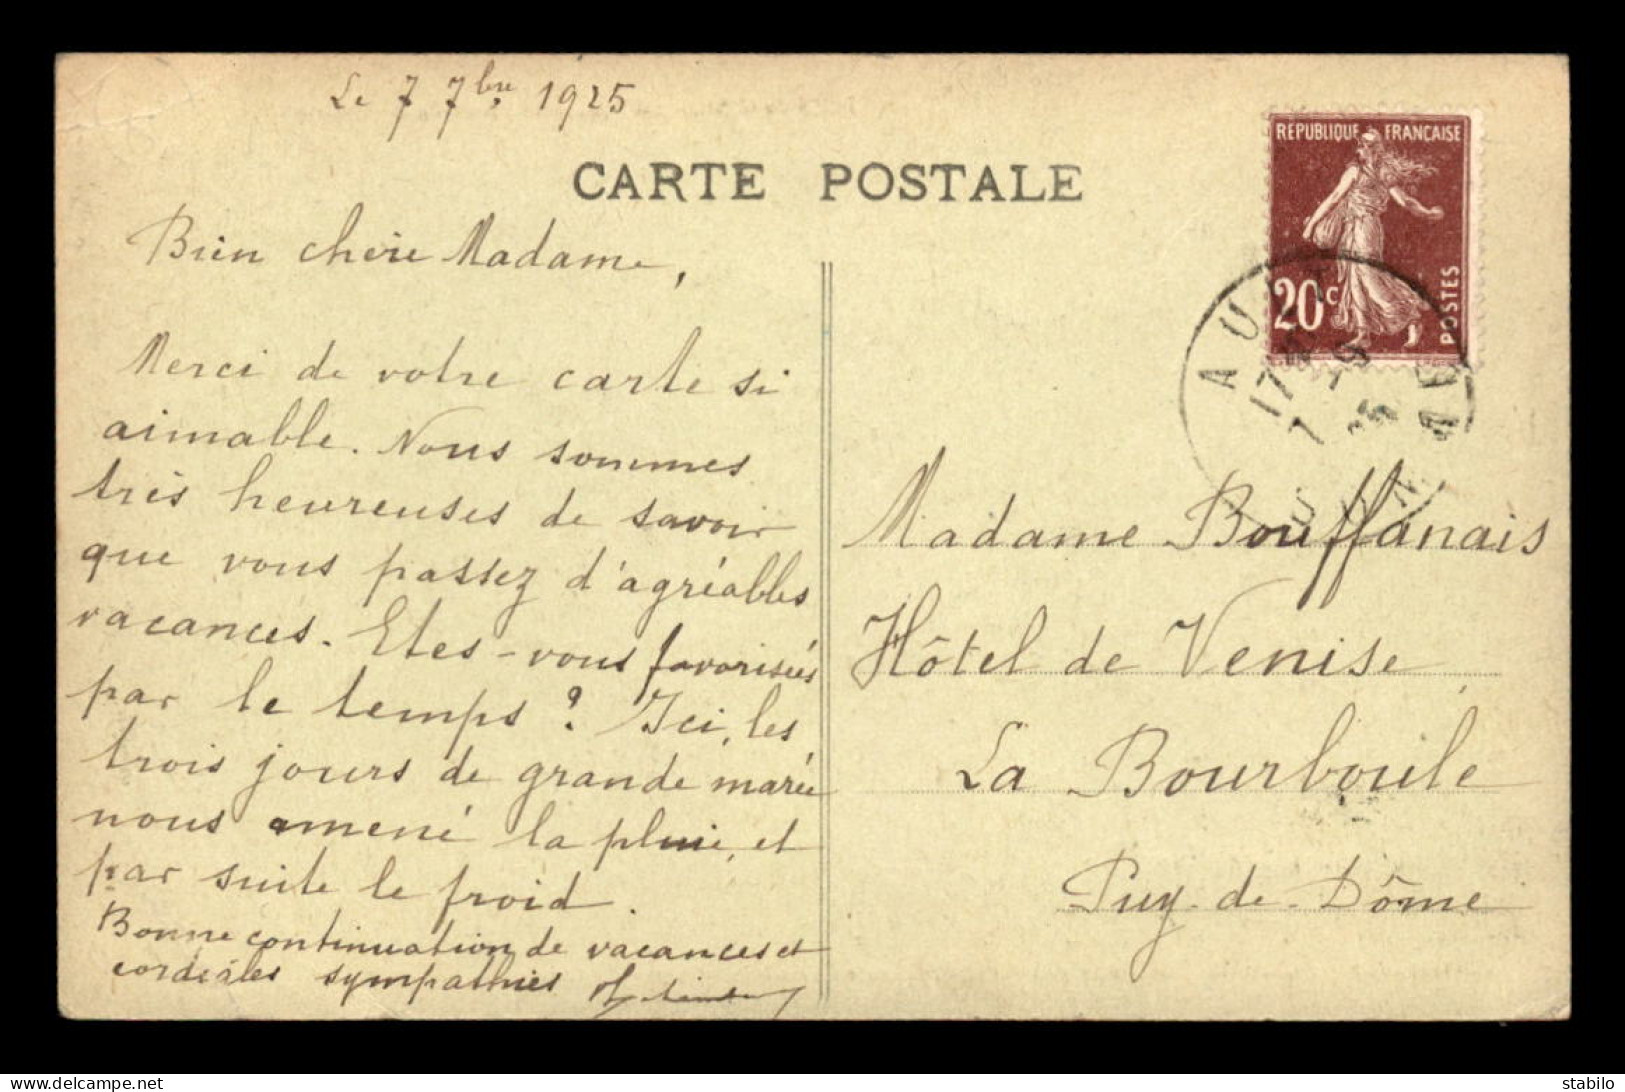 Le 7 7bre 1925
CARTE POSTALE
REPUBLIQUE FRANÇAISE
20c
POSTES
17
7 - 9
25
Bien chère Madame,
Merci de votre carte si
aimable. Nous sommes
très heureuses de savoir
que vous passez d'agréables
vacances. Etes-vous favorisées
par le temps ? Ici, les
trois jours de grande marée
nous amené la pluie, et
par suite le froid.
Bonne continuation de vacances et
cordiales sympathies
Madame Bouffanais
Hôtel de Venise
La Bourboule
Puy-de-Dôme
stabilo